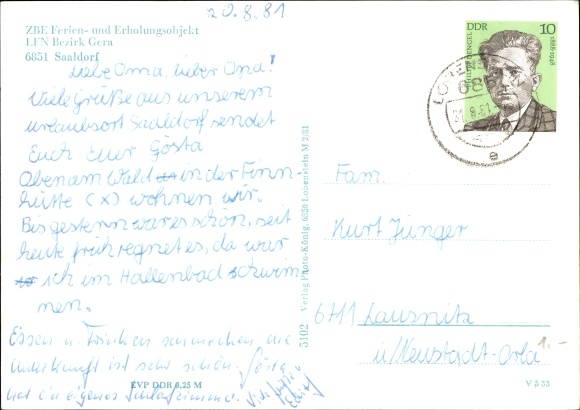 20.8.81
ZBE Ferien- und Erholungsobjekt
LFN Bezirk Gera
6851 Saaldorf
Liebe Oma, lieber Opa!
Viele Grüße aus unserem
Urlaubsort Saaldorf sendet
Euch Euer Gösta
Oben am Wald in der Finn-
hütte (x) wohnen wir.
Bis gestern war es schön, seit
heute früh regnet es, da war
ich im Hallenbad schwim
men.
Essen u. Trinken
Unterkunft ist sehr schön. Gösta
hat ein eigenes Schlafzimmer.
Viele Grüße
EVP DDR 0,25 M
5102 Verlag Photo-König, 6850 Lobenstein M 2/81
DDR 10
1888-1948
68
8.81
Fam.
Kurt Jünger
6711 Lausnitz
ü/Neustadt-Orla
1.-
V 5 53